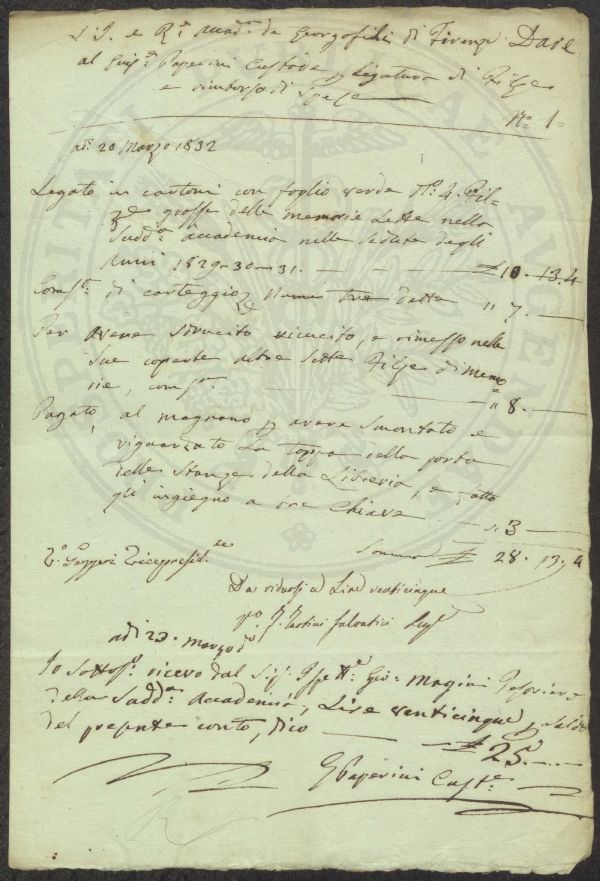 L'I. e R. Accad.a de Georgofili di Firenze Dare
al Giusp.e Paperini Custode p Legatura di Filze
e rimborso di Spese
N.o 1
adi 20 Marzo 1832
Legato in cartoni con foglio verde N.o 4 Fil-
ze grosse delle memorie Lette nella
Sudd.a Accademia nelle Sedute degli
Anni 1829-30-31. £ 10. 13.4
Comp.to di conteggio Numo tre dette " 7. —
Per avere sdrucito ricucito, e rimesso nelle
Sue coperte altre Sette Filze di memo
rie, comp. " 8. —
Pagato, al magnano p avere Smontato e
riguardato La Toppa della porta
delle Stanze della Libreria, e fatto
gli ingegno a tre Chiave " 3 —
Somma £ 28. 13.4
V.o Gazzeri Vicepresid.te
Da ridursi a Lire venticinque
adi 23. Marzo d.o
Io Sottos.o ricevo dal Sig. Gio: Magini Tesoriere
della Sudd.a Accademia, Lire venticinque p Saldo
del presente conto, Dico £ 25. —
G Paperini Cust.e
PROSPERITATI PUBLICAE AUGENDAE